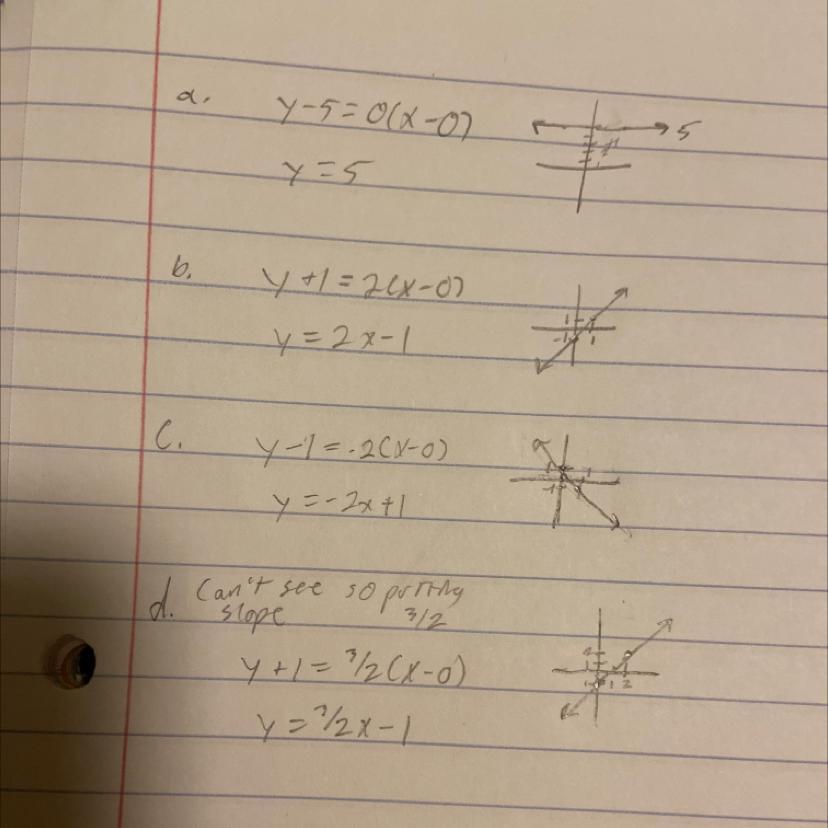 a. y-5=0(x-0)
y=5
5
b. y+1=2(x-0)
y=2x-1
1
-1 1
c. y-1=-2(x-0)
y=-2x+1
1 1
-1
d. Can't see so putting
slope 3/2
y+1=3/2(x-0)
y=3/2x-1
2
1
1 1 2